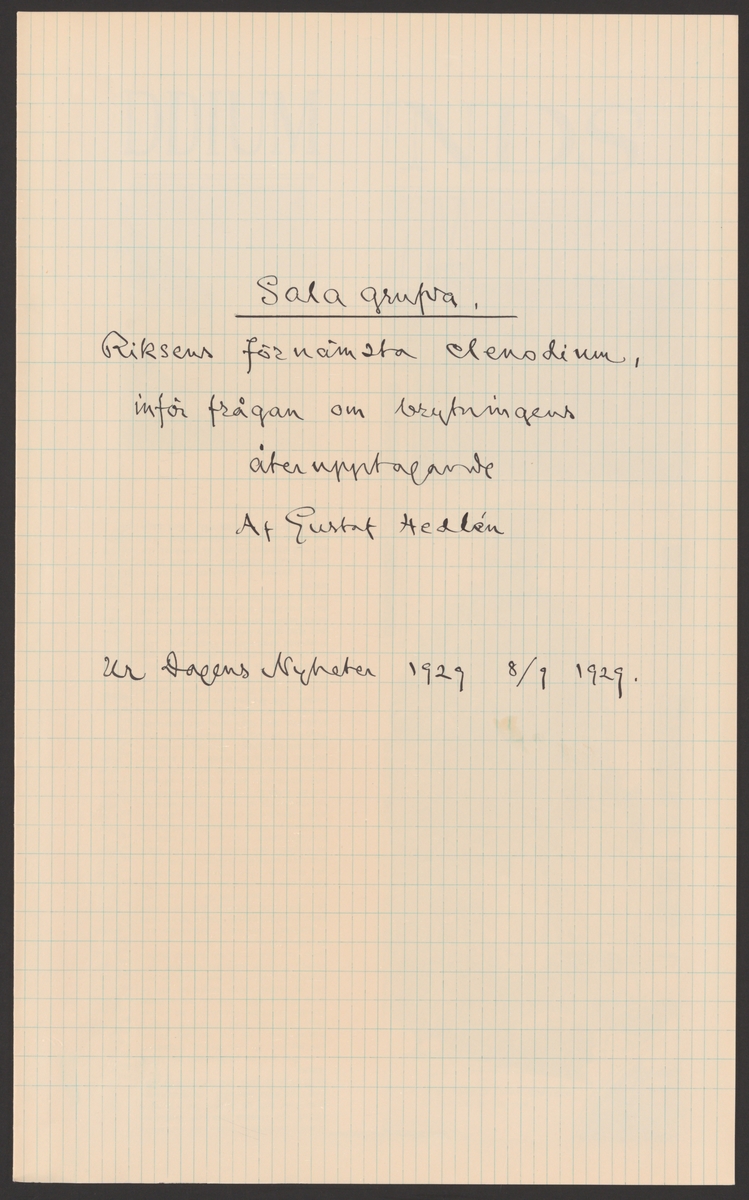 Sala grufva.
Riksens förnämsta clenodium,
inför frågan om brytningens
återupptagande
Af Gustaf Hedlén
Ur Dagens Nyheter 1929 8/9 1929.